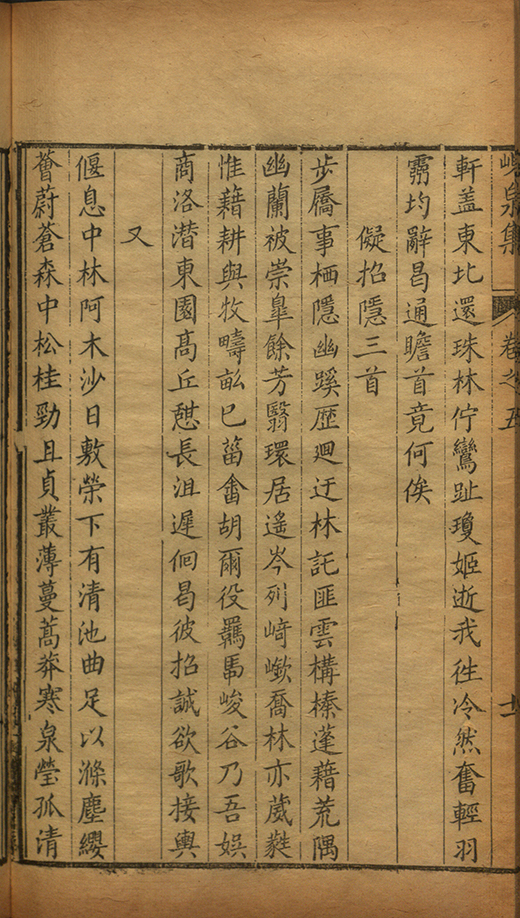 峴泉集 卷之五 十一
軒盖東北還珠林佇鸞趾瓊姬逝我徃冷然奮輕羽
霛均辭曷通瞻首竟何俟
儗招隱三首
步屩事栖隱幽蹊歴迴迂林託匪雲構榛蓬藉荒隅
幽蘭被崇臯餘芳翳環居遙岑列崎嶔喬林亦葳蕤
惟藉耕與牧疇畆巳菑畬胡爾役羈馬峻谷乃吾娛
商洛潜東園高丘憇長沮遲佪曷彼招誠欲歌接輿
又
偃息中林阿木沙日敷榮下有清池曲足以滌塵纓
薈蔚蒼森中松桂勁且貞叢薄蔓蒿莽寒泉瑩孤清